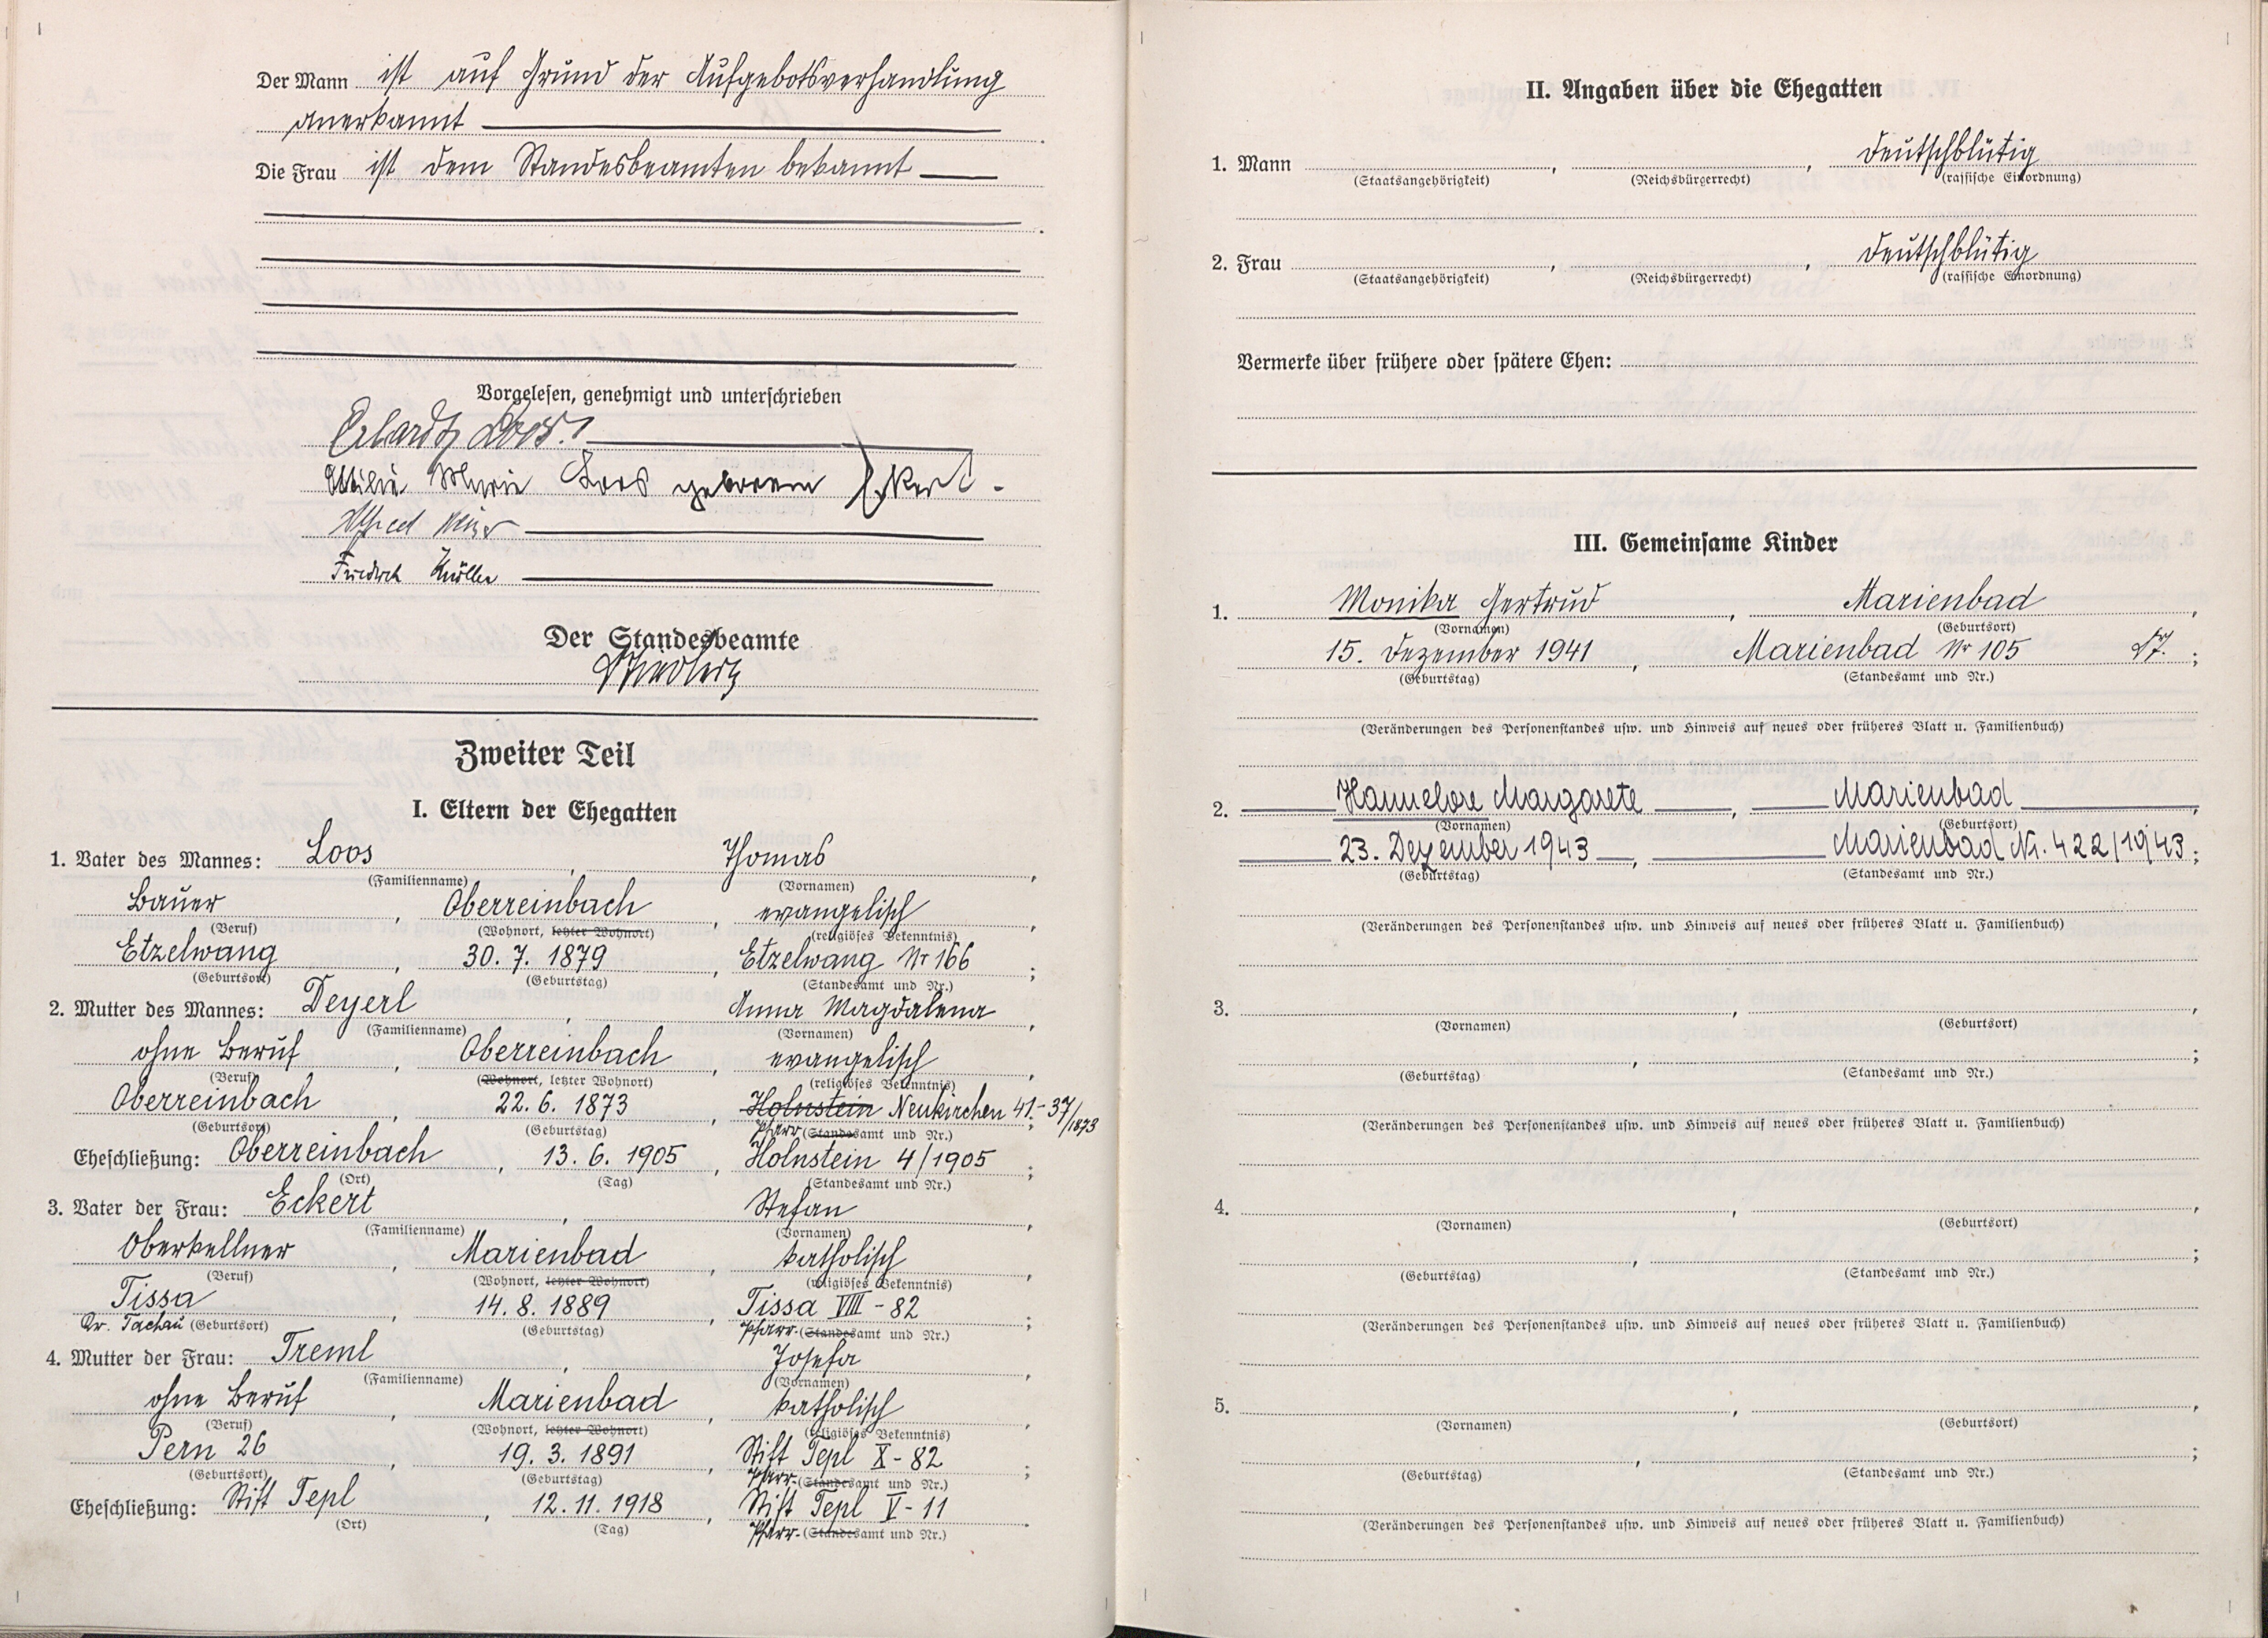 Der Mann ist auf Grund der Aufgebotsverhandlung
anerkannt
Die Frau ist dem Standesbeamten bekannt
Vorgelesen, genehmigt und unterschrieben
Loos
Marie Loos geborene Eckert
Friedrich
Der Standesbeamte
Zweiter Teil
I. Eltern der Ehegatten
1. Vater des Mannes: Loos, Thomas,
(Familienname) (Vornamen)
Bauer, Oberreinbach, evangelisch,
(Beruf) (Wohnort, letzter Wohnort) (religiöses Bekenntnis)
Etzelwang, 30. 7. 1879, Etzelwang Nr 166;
(Geburtsort) (Geburtstag) (Standesamt und Nr.)
2. Mutter des Mannes: Deyerl, Anna Magdalena,
(Familienname) (Vornamen)
ohne Beruf, Oberreinbach, evangelisch,
(Beruf) (Wohnort, letzter Wohnort) (religiöses Bekenntnis)
Oberreinbach, 22. 6. 1873, Holnstein Neukirchen 41.-37/1873;
(Geburtsort) (Geburtstag) Pfarr (Standesamt und Nr.)
Eheschließung: Oberreinbach, 13. 6. 1905, Holnstein 4/1905;
(Ort) (Tag) (Standesamt und Nr.)
3. Vater der Frau: Eckert, Stefan,
(Familienname) (Vornamen)
Oberkellner, Marienbad, katholisch,
(Beruf) (Wohnort, letzter Wohnort) (religiöses Bekenntnis)
Tissa, 14. 8. 1889, Tissa VIII - 82;
Kr. Tachau (Geburtsort) (Geburtstag) Pfarr- (Standesamt und Nr.)
4. Mutter der Frau: Treml, Josefa,
(Familienname) (Vornamen)
ohne Beruf, Marienbad, katholisch,
(Beruf) (Wohnort, letzter Wohnort) (religiöses Bekenntnis)
Pern 26, 19. 3. 1891, Stift Tepl X - 82;
(Geburtsort) (Geburtstag) Pfarr- (Standesamt und Nr.)
Eheschließung: Stift Tepl, 12. 11. 1918, Stift Tepl V - 11.
(Ort) (Tag) Pfarr- (Standesamt und Nr.)
II. Angaben über die Ehegatten
1. Mann , , deutschblütig
(Staatsangehörigkeit) (Reichsbürgerrecht) (rassische Einordnung)
2. Frau , , deutschblütig
(Staatsangehörigkeit) (Reichsbürgerrecht) (rassische Einordnung)
Vermerke über frühere oder spätere Ehen:
III. Gemeinsame Kinder
1. Monika Gertrud, Marienbad,
(Vornamen) (Geburtsort)
15. Dezember 1941, Marienbad Nr 105;
(Geburtstag) (Standesamt und Nr.)
(Veränderungen des Personenstandes usw. und Hinweis auf neues oder früheres Blatt u. Familienbuch)
2. Hannelore Margarete, Marienbad,
(Vornamen) (Geburtsort)
23. Dezember 1943, Marienbad Nr. 422/1943;
(Geburtstag) (Standesamt und Nr.)
(Veränderungen des Personenstandes usw. und Hinweis auf neues oder früheres Blatt u. Familienbuch)
3. , ,
(Vornamen) (Geburtsort)
, ;
(Geburtstag) (Standesamt und Nr.)
(Veränderungen des Personenstandes usw. und Hinweis auf neues oder früheres Blatt u. Familienbuch)
4. , ,
(Vornamen) (Geburtsort)
, ;
(Geburtstag) (Standesamt und Nr.)
(Veränderungen des Personenstandes usw. und Hinweis auf neues oder früheres Blatt u. Familienbuch)
5. , ,
(Vornamen) (Geburtsort)
, ;
(Geburtstag) (Standesamt und Nr.)
(Veränderungen des Personenstandes usw. und Hinweis auf neues oder früheres Blatt u. Familienbuch)